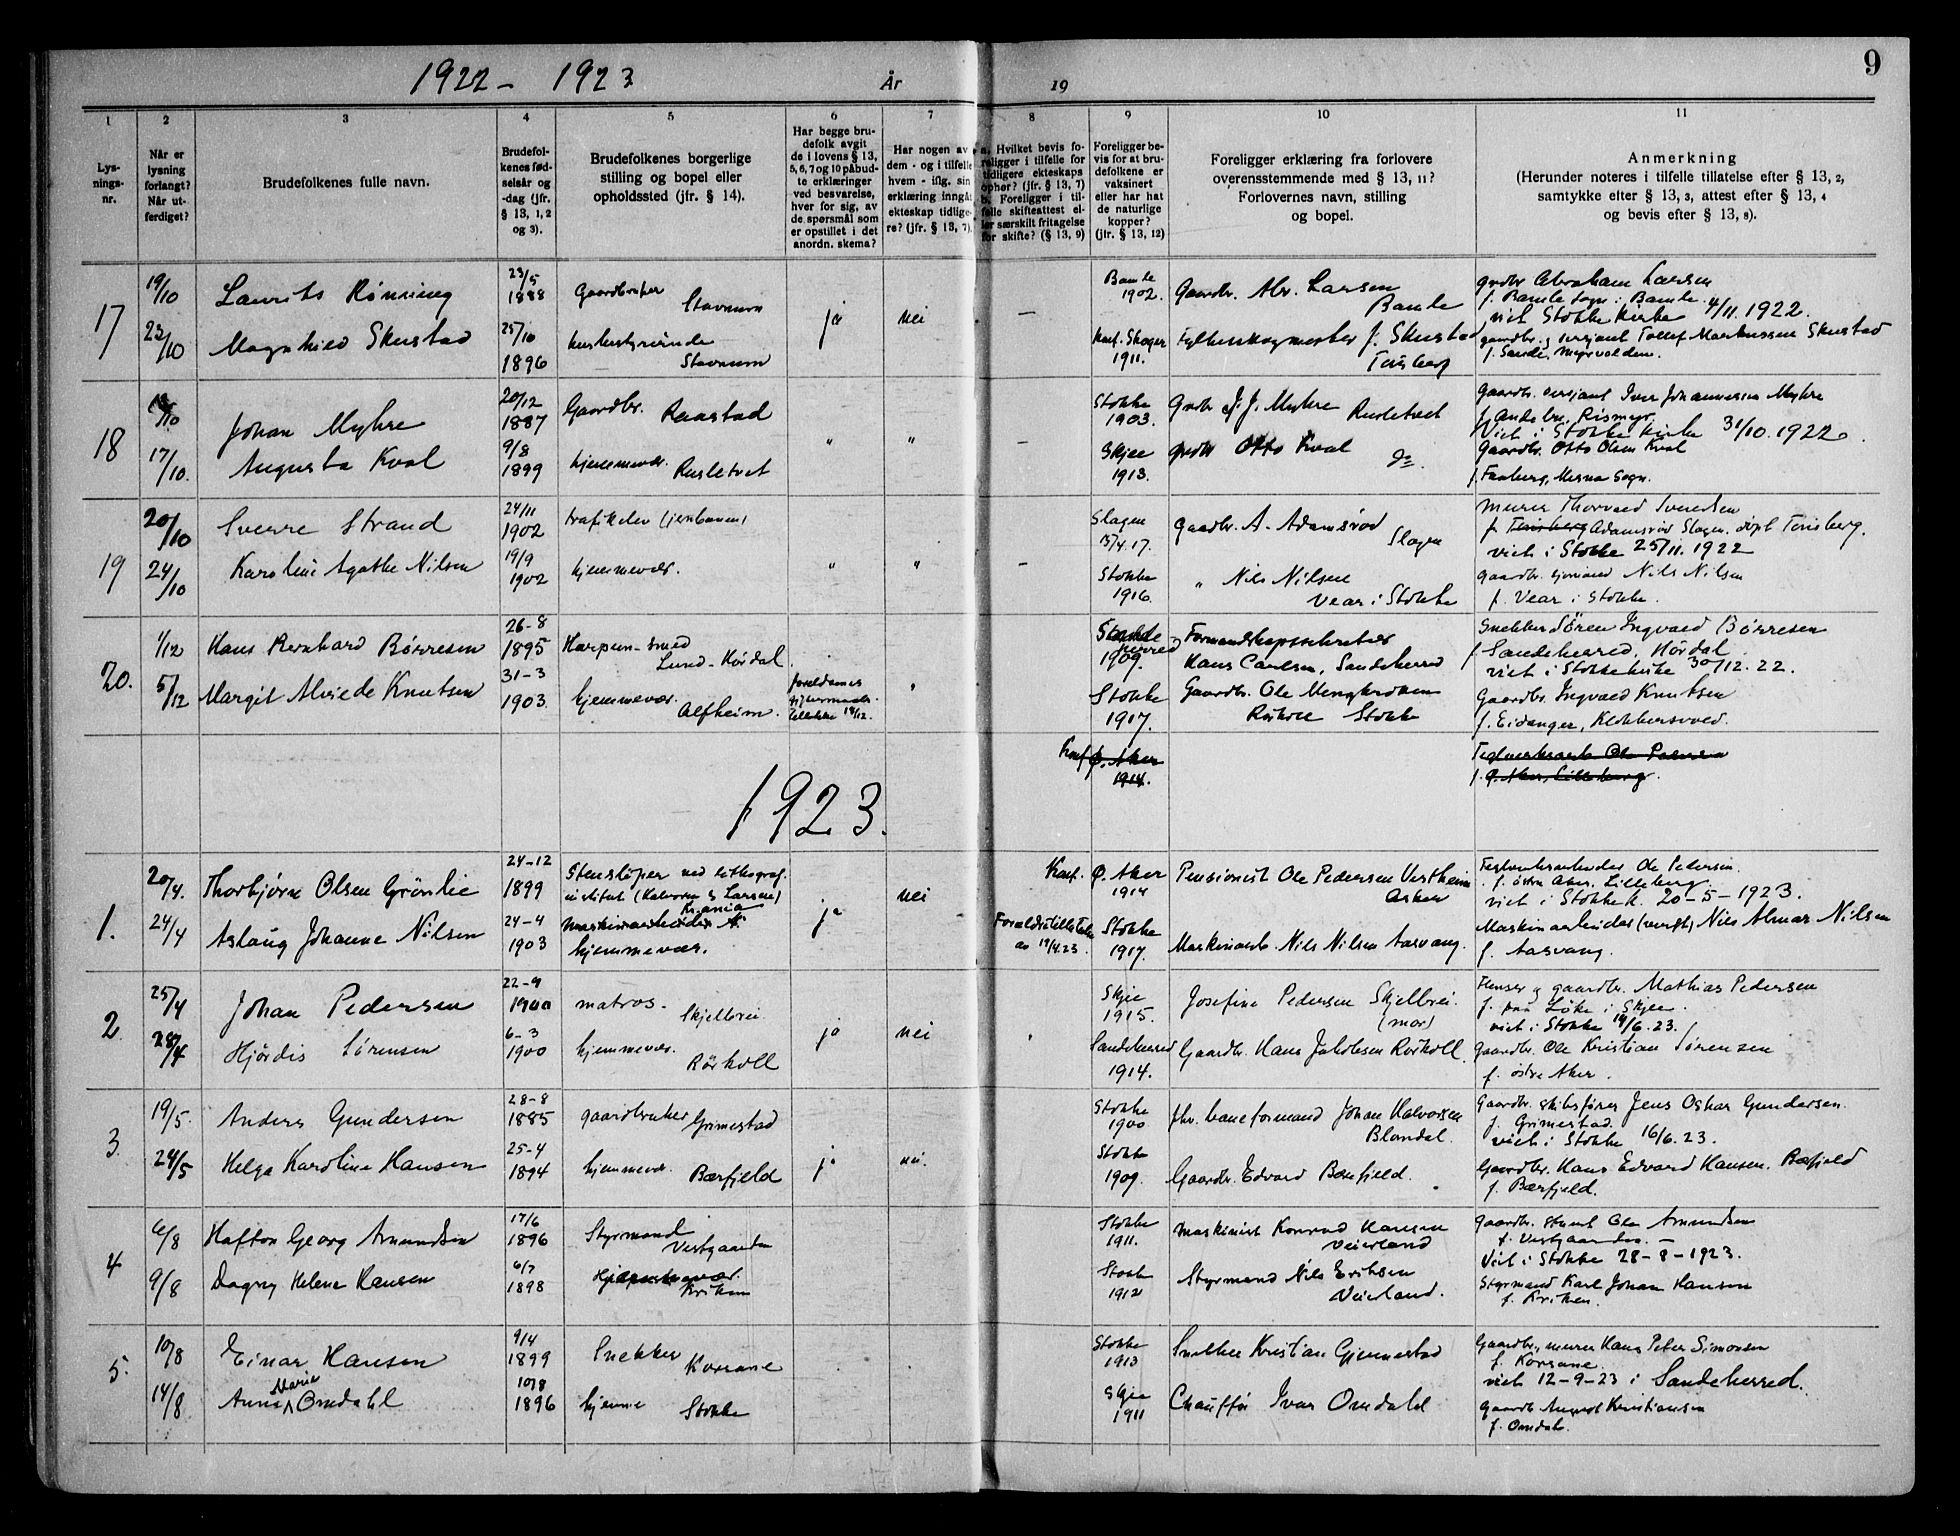 1922 - 1923 År 19
9
1 2 3 4 5 6 7 8 9 10 11
Lysningsnr.
Når er lysning forlangt? Når utferdiget?
Brudefolkenes fulle navn.
Brudefolkenes fødselsår og -dag (jfr. § 13, 1, 2 og 3).
Brudefolkenes borgerlige stilling og bopel eller opholdssted (jfr. § 14).
Har begge brudefolk avgit de i lovens § 13, 5, 6, 7 og 10 påbudte erklæringer ved besvarelse, hver for sig, av de spørsmål som er opstillet i det anordn. skema?
Har nogen av dem - og i tilfelle hvem - iflg. sin erklæring inngåt ekteskap tidligere? (jfr. § 13, 7).
a. Hvilket bevis foreligger i tilfelle for tidligere ekteskaps ophør? (jfr. § 13, 7) b. Foreligger i tilfelle skifteattest eller særskilt fritagelse for skifte? (§ 13, 9)
Foreligger bevis for at brudefolkene er vaksinert eller har hat de naturlige kopper? (jfr. § 13, 12)
Foreligger erklæring fra forlovere overensstemmende med § 13, 11? Forlovernes navn, stilling og bopel.
Anmerkning
(Herunder noteres i tilfelle tillatelse efter § 13, 2, samtykke efter § 13, 3, attest efter § 13, 4 og bevis efter § 13, 8).
17
19/10 Laurits Rønning 23/5 1888 Gaardbruker Stavnum ja nei — Bamle 1902. Gaardbr. Abr. Larsen Bamle
grdbr Abraham Larsen
f. Bamle sogn i Bamle.
viet Stokke kirke 4/11. 1922.
23/10 Magnhild Skustad 25/10 1896 husbestyrerinde Stavnum Konf. Skoger 1911. Fylkesskogmester J. Skustad Tønsberg
gaardbr. og sersjant Tollef Markussen Skustad
f. Sande,
18
/10 Johan Myhre 20/12 1887 Gaardbr. Raastad " " — Stokke 1903. Grdbr J. J. Myhre Rusletvet
Gaardbr. sersjant Iver Johannesen Myhre
f. Andebu, Rismyr
Viet i Stokke kirke 31/10. 1922.
17/10. Augusta Kval 9/8 1899 hjemmevær. Rusletvet Skjee 1913. grdbr Otto Kval do.
Gaardbr. Otto Olsen Kval
f. Faaberg, Mesna Sogn.
19
20/10 Sverre Strand 24/11 1902 trafikelev (jernbanen) " " — Slagen 15/4.17. gaardbr. A. Adamsrød Slagen
murer Thorvald Svendsen
f. Tønsberg Adamsrød Slagen, døpt Tønsberg.
viet i Stokke 25/11. 1922
24/10 Karoline Agathe Nilsen 19/9 1902 hjemmevær. Stokke 1916. " Nils Nilsen Vear i Stokke
gaardbr. sjømand Nils Nilsen
f. Vear i Stokke.
20.
1/12 Hans Bernhard Børresen 26-8 1895 Harpun-smed Lund-Hørdal. Sandeherred 1909. Formandskapssekretær Hans Carlsen, Sandeherred
Snekker Søren Ingvald Børresen
f. Sandeherred, Hørdal
viet i Stokke kirke 30/12. 22.
5/12 Margit Alvilde Knutsen 31-3 1903. hjemmevær. Alfheim. foreldrenes Stokke 1917. Gaardbr. Ole Mengkroken Rørkoll Stokke
Gaardbr. Ingvald Knutsen
f. Eidanger,
Konf Ø. Aker 1914. Teglverksarb Ole Pedersen
f. Ø. Aker, Lilleberg.
1923.
1.
20/4. Thorbjørn Olsen Grønlie 24-12 1899 Stensliper ved lithograf. institut (Halvorsen & Larsen) Kr.ania ja nei Konf. Ø. Aker 1914 Pensionist Ole Pedersen Vestheim Asker
Teglverksarbeider Ole Pedersen.
f. østre Aker. Lilleberg
viet i Stokke k. 20-5-1923.
24/4 Aslaug Johanne Nilsen 24-4 1903 hjemmevær. Foreldretillatelse av 19/4.23 Stokke 1917. Maskinarb. Nils Nilsen Aasvang.
Maskinarbeider (verft) Nils Almar Nilsen
f. Aasvang.
2
25/4 Johan Pedersen 22-9 1900 matros. Skjelbrei ja nei Skjee 1915. Josefine Pedersen Skjelbrei. (mor)
Flenser og gaardbr. Mathias Pedersen
f. paa Løke i Skjee.
viet i Stokke 14/6.23.
28/4 Hjørdis Sørensen 6-3 1900 hjemmevær. Rørkoll Sandeherred 1914. Gaardbr. Hans Jakobsen Rørkoll.
gaardbr. Ole Kristian Sørensen
f. østre Aker.
3
19/5. Anders Gundersen 28-8 1885 gaardbruker Grimestad ja nei. Stokke 1900 fhv. baneformand Johan Halvorsen Blandal.
Gaardbr. skibsfører Jens Oskar Gundersen.
f. Grimestad.
viet i Stokke 16/6.23.
24/5 Helga Karoline Hansen 25-4 1894 hjemmevær. Bærfjeld Stokke 1909. Gaardbr. Edvard Bærfjeld.
Gaardbr. Hans Edvard Hansen. Bærfjeld
f. Bærfjeld.
4
6/8 Hafton Georg Amundsen 17/6 1896 Styrmand Vestgaarden Stokke 1911. maskinist Konrad Hansen Veierland
gaardbr. Ole Amundsen
f. Vestgaarden. —
Viet i Stokke 28-8-1923.
9/8 Dagny Helene Hansen 6/7 1898 Hjemmevær. Kriken Stokke 1912 Styrmand Nils Eriksen Veierland.
Styrmand Karl Johan Hansen
f. Kriken.
5.
10/8 Einar Hansen 9/4 1899 Snekker Korsane Stokke 1913 Snekker Kristian Gjennestad
Gaardbr., murer Hans Peter Simonsen
f. Korsane.
viet 12-9-23 i Sandeherred.
14/8 Anna Maria Omdahl 10/8 1896 hjemme Stokke Skjee 1911 Chauffør Ivar Omdahl
gaardbr August Kristiansen
f. Omdal.